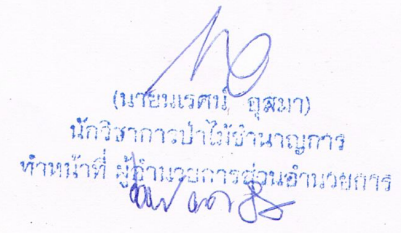 (นายนเรศน์ อุสมา)
นักวิชาการป่าไม้ชำนาญการ
ทำหน้าที่ ผู้อำนวยการส่วนอำนวยการ